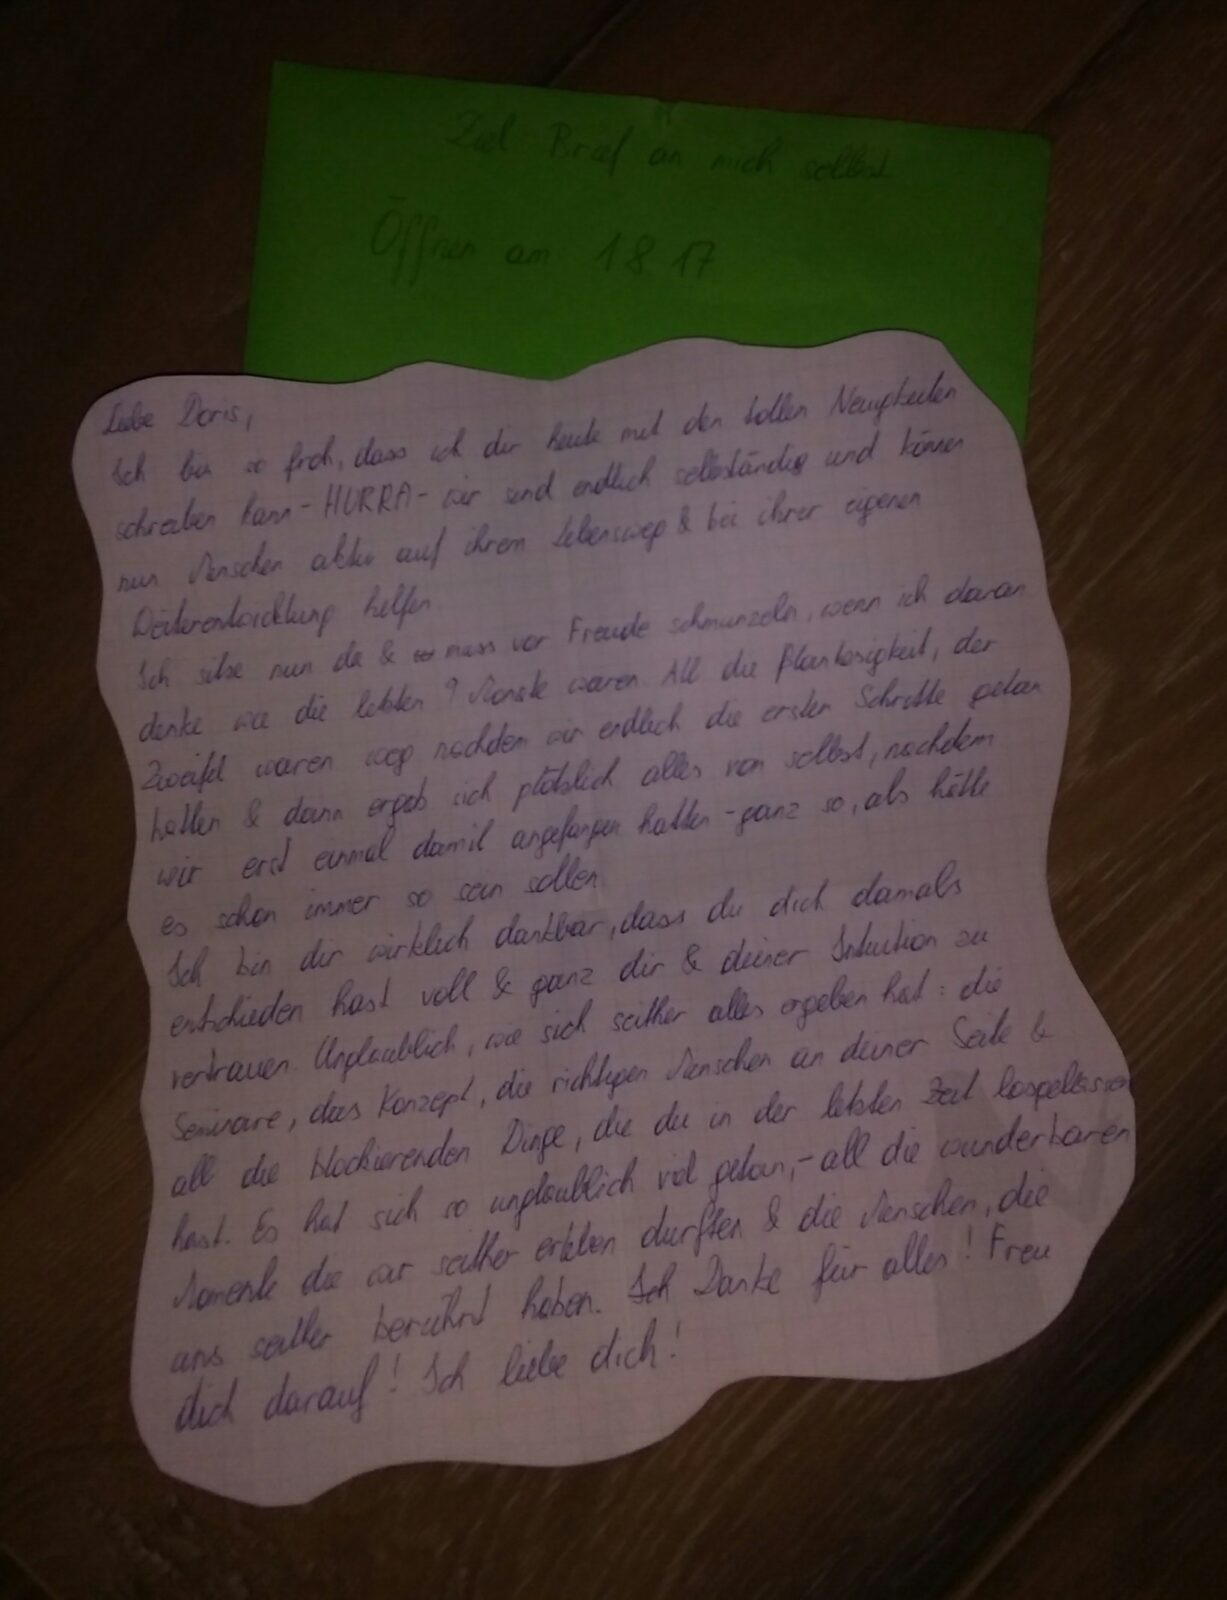 Ziel Brief an mich selbst
Öffnen am 1 8 17
Liebe Doris,
Ich bin so froh, dass ich dir heute mit den tollen Neuigkeiten
schreiben kann - HURRA - wir sind endlich selbständig und können
nun Menschen aktiv auf ihrem Lebensweg & bei ihrer eigenen
Weiterentwicklung helfen.
Ich sitze nun da & muss vor Freude schmunzeln, wenn ich daran
denke wie die letzten 9 Monate waren. All die Planlosigkeit, der
Zweifel waren weg nachdem wir endlich die ersten Schritte getan
hatten & dann ergab sich plötzlich alles von selbst, nachdem
wir erst einmal damit angefangen hatten - ganz so, als hätte
es schon immer so sein sollen.
Ich bin dir wirklich dankbar, dass du dich damals
entschieden hast voll & ganz dir & deiner Intuition zu
vertrauen. Unglaublich, wie sich seither alles ergeben hat: die
Seminare, das Konzept, die richtigen Menschen an deiner Seite &
all die blockierenden Dinge, die du in der letzten Zeit losgelassen
hast. Es hat sich so unglaublich viel getan, - all die wunderbaren
Momente die wir seither erleben durften & die Menschen, die
uns seither berührt haben. Ich Danke für alles! Freu
dich darauf! Ich liebe dich!